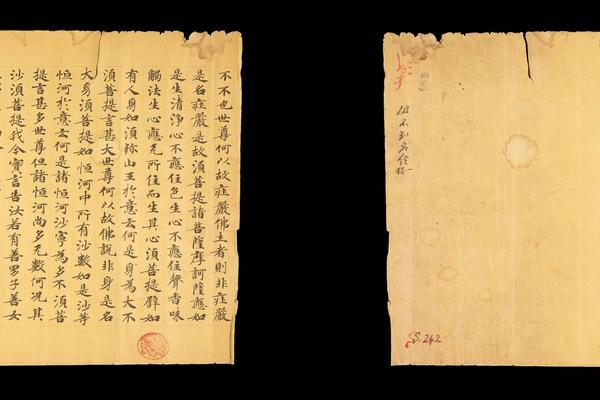 不不也世尊何以故疰嚴佛土者則非疰嚴
是名疰嚴是故須菩提諸菩薩摩訶薩應如
是生清淨心不應住色生心不應住聲香味
觸法生心應无所住而生其心須菩提辟如
有人身如須弥山王於意云何是身為大不
須菩提言甚大世尊何以故佛說非身是名
大身須菩提如恒河中所有沙數如是沙等
恒河於意云何是諸恒河沙寧為多不須菩
提言甚多世尊但諸恒河尚多无數何況其
沙須菩提我今實言告汝若有善男子善女
不知名経
S.242